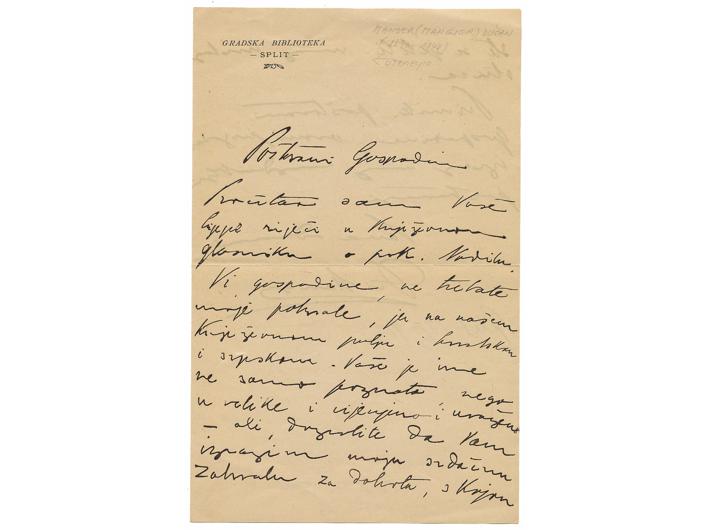 GRADSKA BIBLIOTEKA
— SPLIT —
MANGER (MANGJER) DUŠAN
Poštovani Gospodine
Pročitao sam Vaše
lijepe riječi u Književnom
glasniku o pok. Nodilu.
Vi gospodine, ne trebate
moje pohvale, jer na našem
Književnom polju i hrvatskom
i srpskom. Vaše je ime
ne samo poznato, nego
u velike i cijenjeno i uvaženo
— ali, dozvolite da Vam
izrazim moju srdačnu
Zahvalu za dobrotu, s Kojom